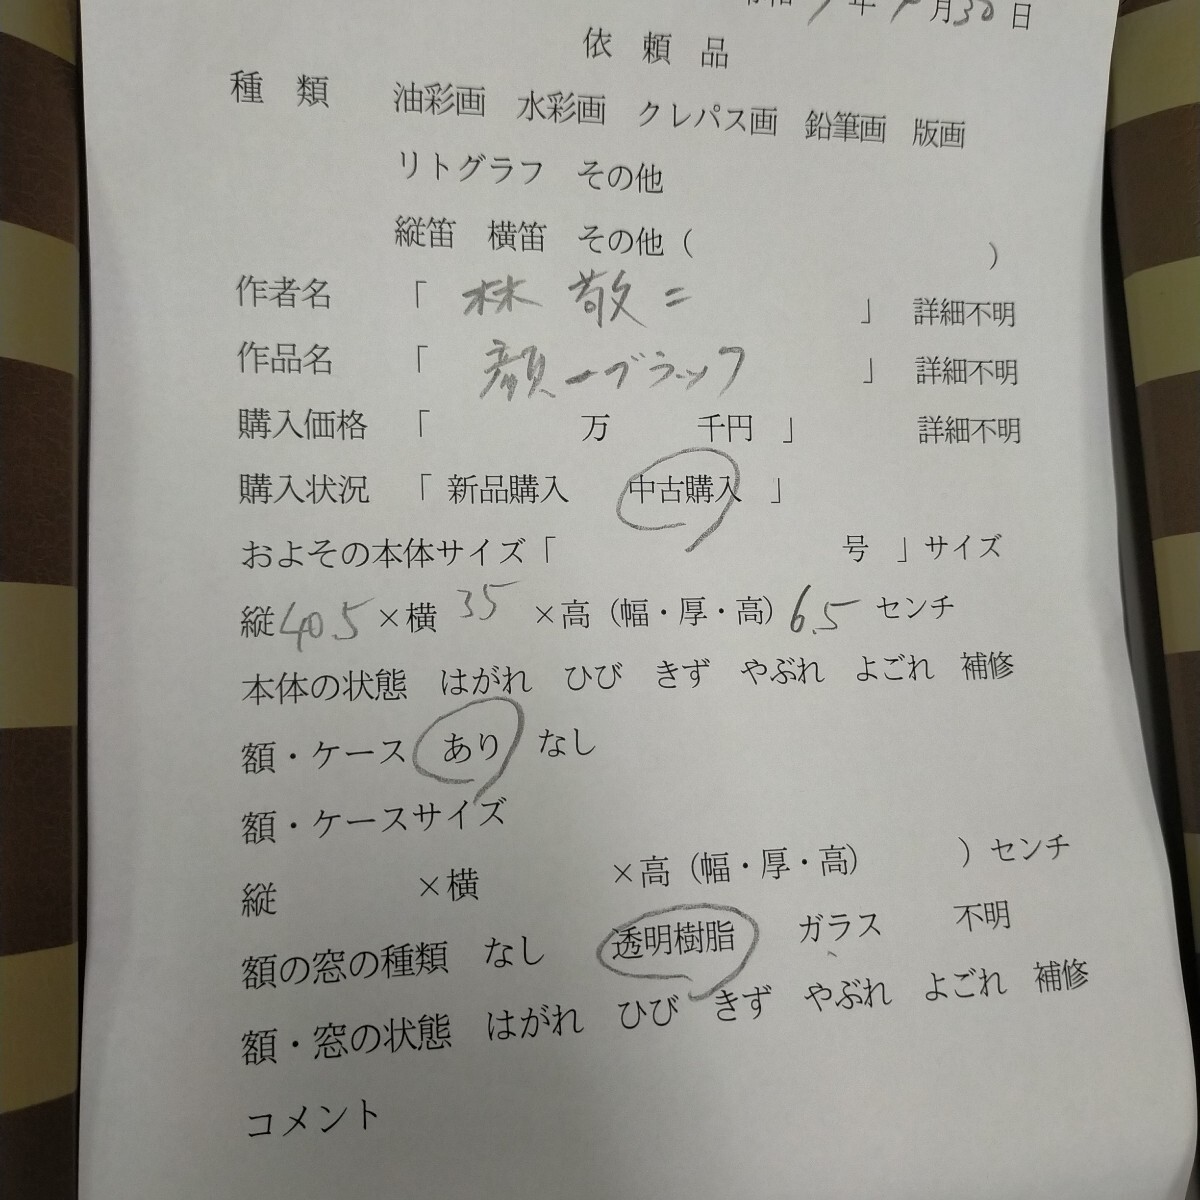 年 月30日
依 頼 品
種 類 油彩画 水彩画 クレパス画 鉛筆画 版画
リトグラフ その他
縦笛 横笛 その他( )
作者名 「 林 敬二 」 詳細不明
作品名 「 顔ーブラック 」 詳細不明
購入価格 「 万 千円 」 詳細不明
購入状況 「 新品購入 中古購入 」
およその本体サイズ「 号 」サイズ
縦40.5×横35×高(幅・厚・高)6.5センチ
本体の状態 はがれ ひび きず やぶれ よごれ 補修
額・ケース あり なし
額・ケースサイズ
縦 ×横 ×高(幅・厚・高) )センチ
額の窓の種類 なし 透明樹脂 ガラス 不明
額・窓の状態 はがれ ひび きず やぶれ よごれ 補修
コメント